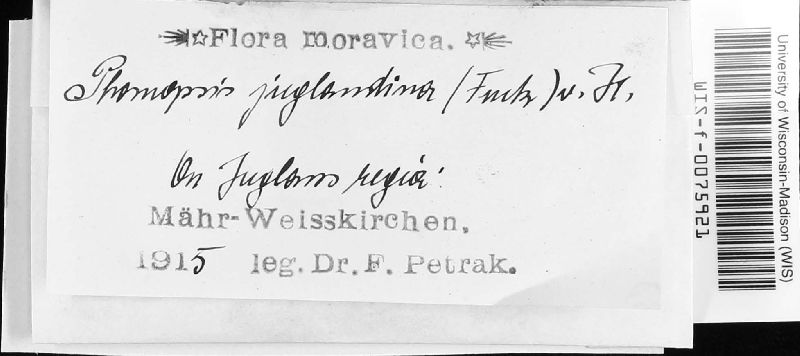 Flora moravica.
Phomopsis juglandina (Fuck) v. H.
On Juglans regia.
Mähr-Weisskirchen,
1915 leg. Dr. F. Petrak.
WIS-f-0075921
University of Wisconsin-Madison (WIS)